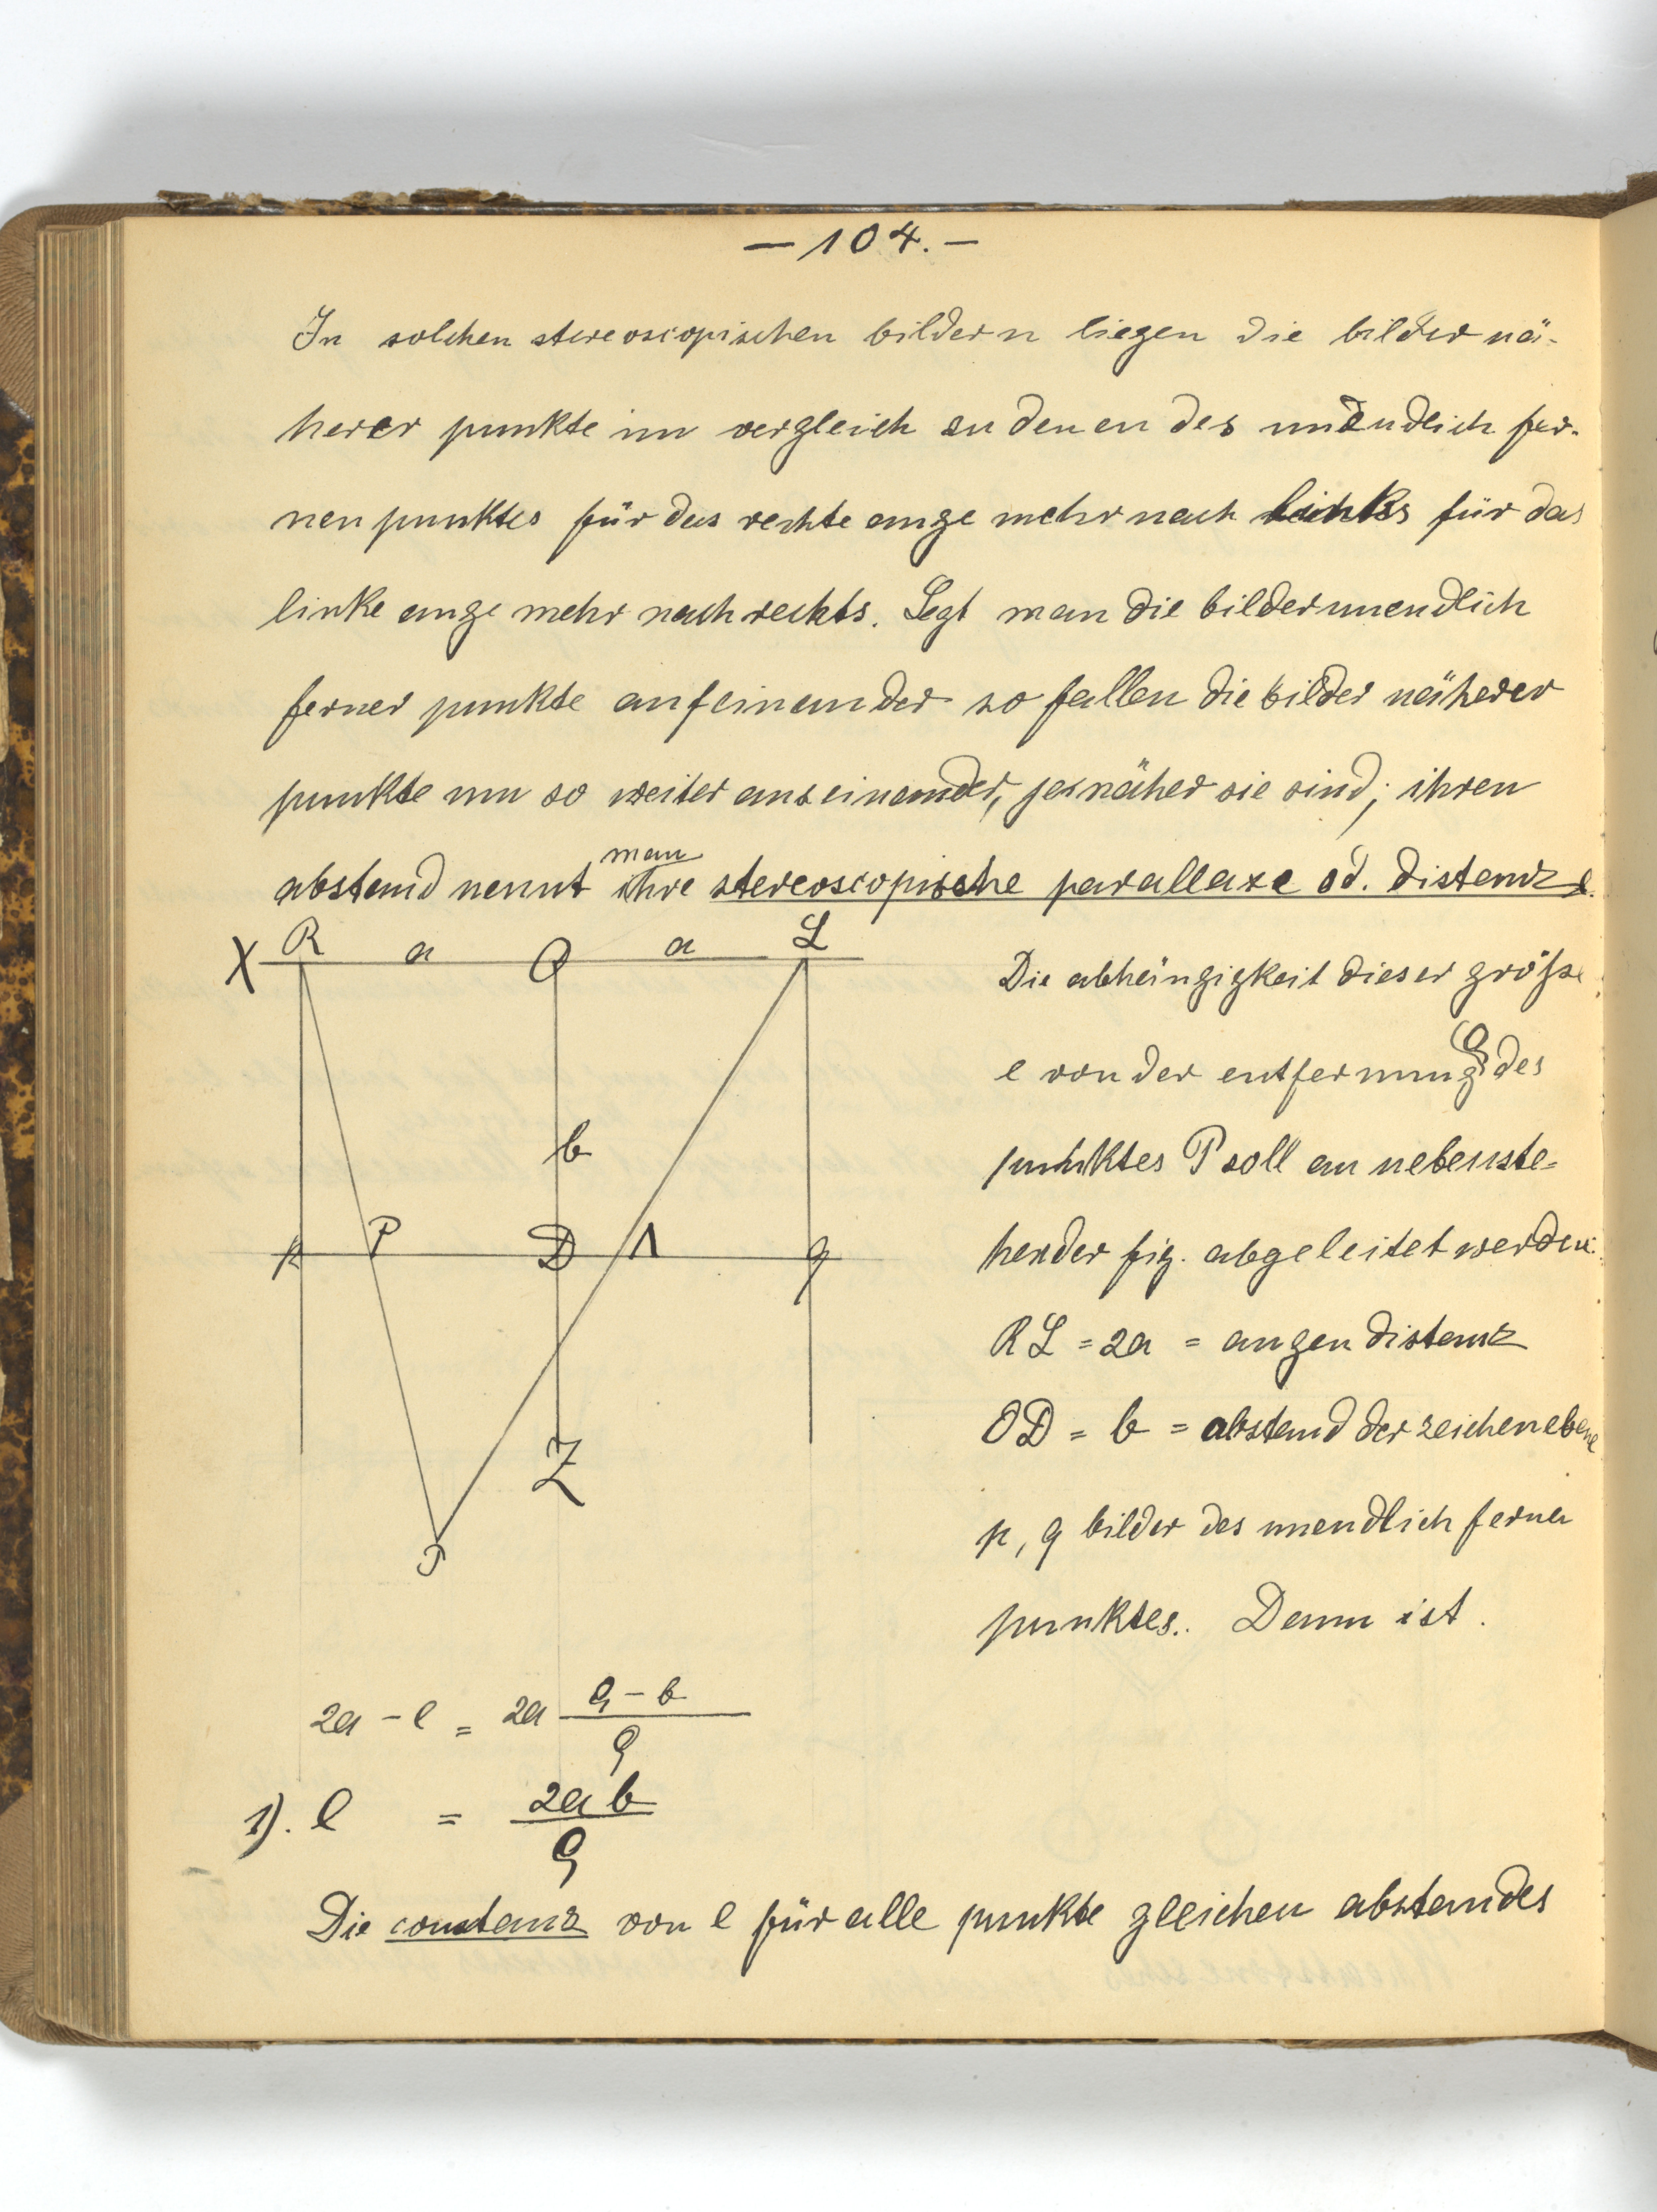 — 104. —
In solchen stereoscopischen bildern liegen die bilder nä-
herer punkte im vergleich zu denen des unendlich fer-
nen punktes für das rechte auge mehr nach links für das
linke auge mehr nach rechts. Legt man die bilder unendlich
ferner punkte aufeinander so fallen die bilder näherer
punkte um so weiter auseinander, je näher sie sind; ihren
man
abstand nennt ihre stereoscopische parallaxe od. distanz e.
X R a O a L
Die abhängigkeit dieser größe
e von der entfernung ϱ des
b
punktes P soll an nebenste-
p P D Λ q
hender fig. abgeleitet werden:
RL = 2a = augendistanz
OD = b = abstand der zeichenebene
Z
p, q bilder des unendlich fernen
P
punktes. Dann ist.
2a - e = 2a (ϱ - b)/ϱ
1). e = 2ab/ϱ
Die constanz von e für alle punkte gleichen abstandes